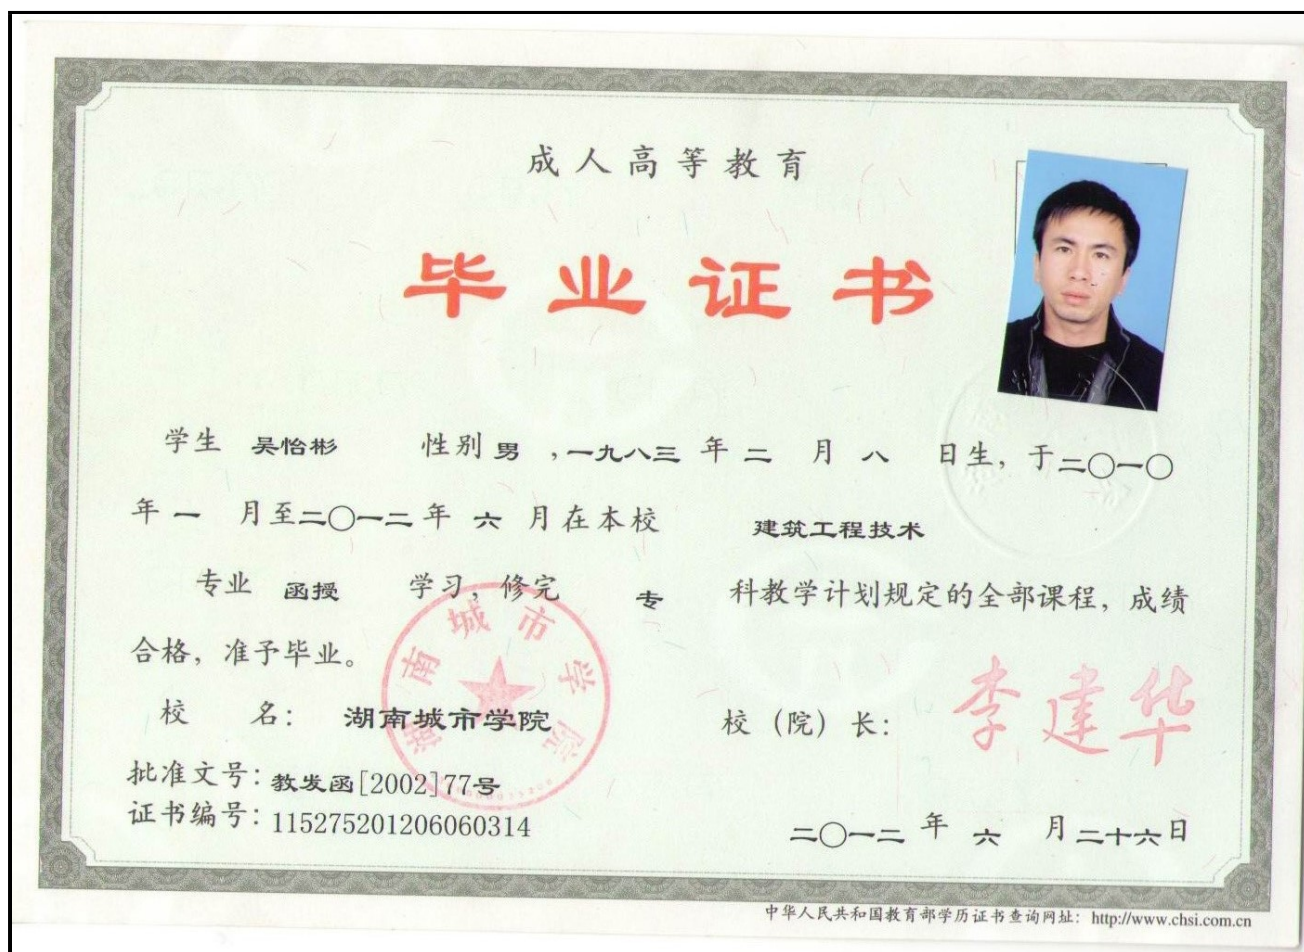 成人高等教育
毕业证书
学生 吴怡彬 性别 男 ,一九八三 年 二 月 八 日生, 于二〇一〇
年 一 月至二〇一二 年 六 月在本校 建筑工程技术
专业 函授 学习, 修完 专 科教学计划规定的全部课程, 成绩
合格, 准予毕业。
校 名: 湖南城市学院 校（院）长: 李建华
湖南城市学院
批准文号: 教发函[2002]77号
证书编号: 115275201206060314
二〇一二 年 六 月 二十六日
中华人民共和国教育部学历证书查询网址: http://www.chsi.com.cn